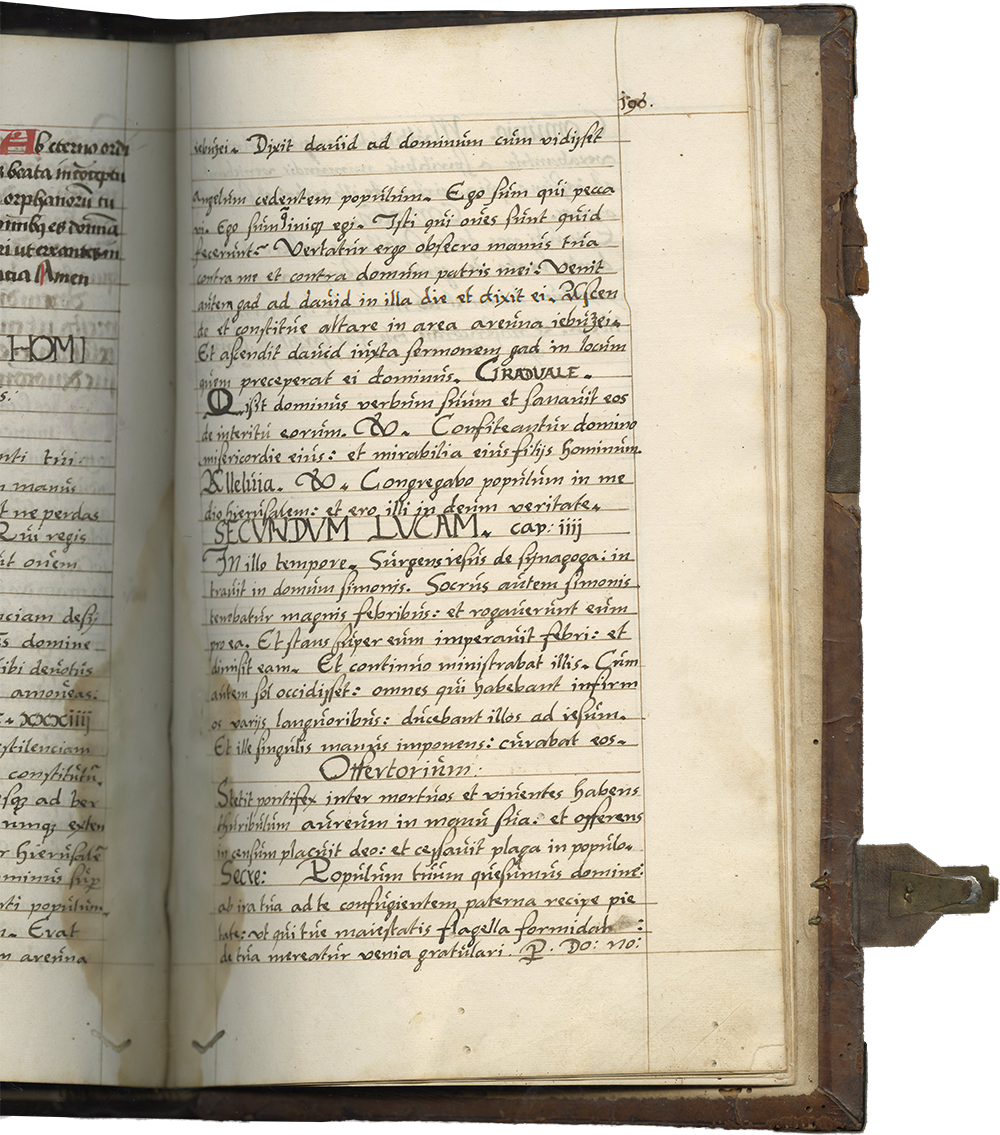 b eterno ordi
s beata in cōceptu
orphanorū tu
ri ut errantem
Amen
HOMI
nti tui.
n manus
t ne perdas
Qui regis
ut ovem
nciam desi
s domine
ibi devotus
amoveas:
. xxxiiij
estilenciam
constitutu.
esq3 ad ber
umq3 exten
r hierusalē
ominus sup
rti populum.
n. Erat
m areuna
196.
iebuzei. Dixit david ad dominum cum vidisset
angelum cedentem populum. Ego sum qui pecca
vi. Ego sum iniq egi. Isti qui oves sunt quid
fecerunt? Vertatur ergo obsecro manus tua
contra me et contra domum patris mei: Venit
autem gad ad david in illa die et dixit ei. Ascen
de et constitue altare in area areuna iebuzei.
Et ascendit david iuxta sermonem gad in locum
quem preceperat ei dominus. GRADUALE.
Misit dominus verbum suum et sanavit eos
de interitu eorum. V. Confiteantur domino
misericordie eius: et mirabilia eius filijs hominum.
Alleluia. V. Congregabo populum in me
dio hierusalem: et ero illi in deum veritate.
SECUNDUM LUCAM. cap: iiij
In illo tempore. Surgens iesus de synagoga: in
travit in domum simonis. Socrus autem simonis
tenebatur magnis febribus: et rogaverunt eum
pro ea. Et stans super eum imperavit febri: et
dimisit eam. Et continuo ministrabat illis. Cum
autem sol occidisset: omnes qui habebant infirm
os varijs languoribus: ducebant illos ad iesum.
Et ille singulis manus imponens: curabat eos.
Offertorium:
Stetit pontifex inter mortuos et viventes habens
thuribulum aureum in manu sua: et offerens
incensum placuit deo: et cessavit plaga in populo.
Secre: Populum tuum quesumus domine:
ab ira tua ad te confugientem paterna recipe pie
tate: ut qui tue maiestatis flagella formidan :
de tua mereatur venia gratulari. P. Do: no: